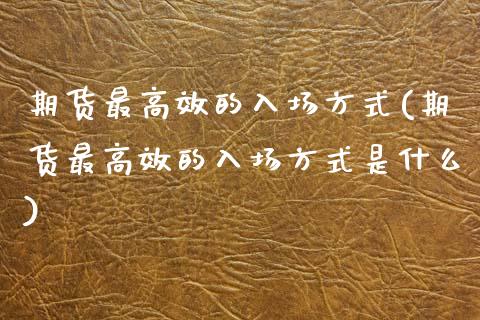 期货最高效的入场方式(期
货最高效的入场方式是什么
)